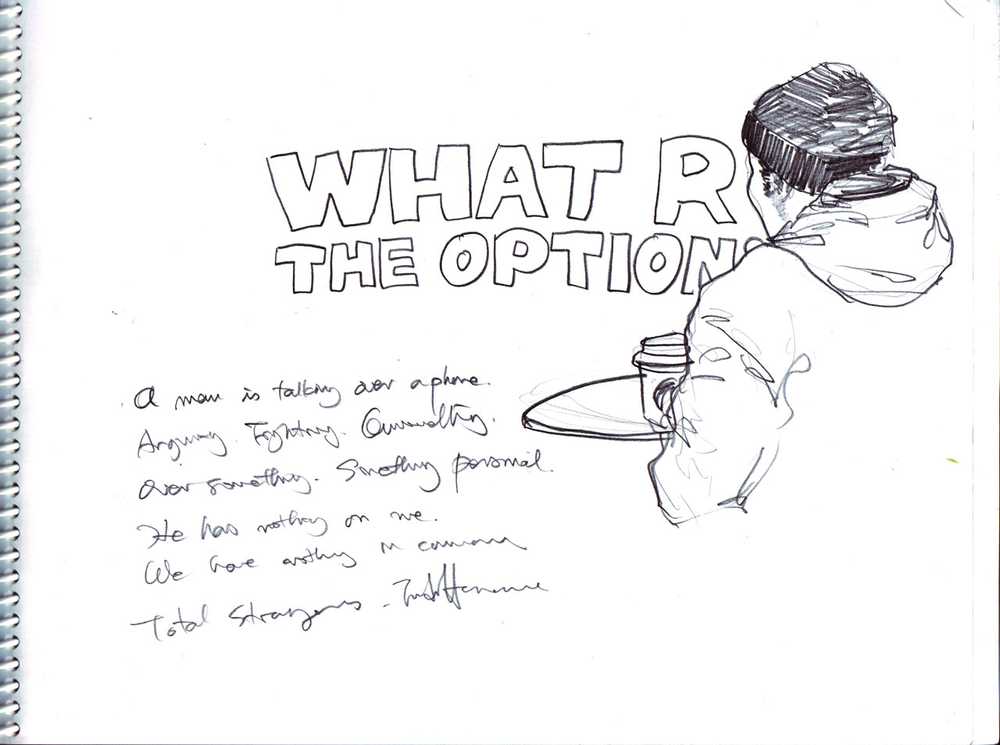 WHAT R
THE OPTION
A man is talking over a phone.
Arguing. Fighting. Quarrelling.
Over something. Something personal.
He has nothing on me.
We have nothing in common
Total Strangers - Indifference